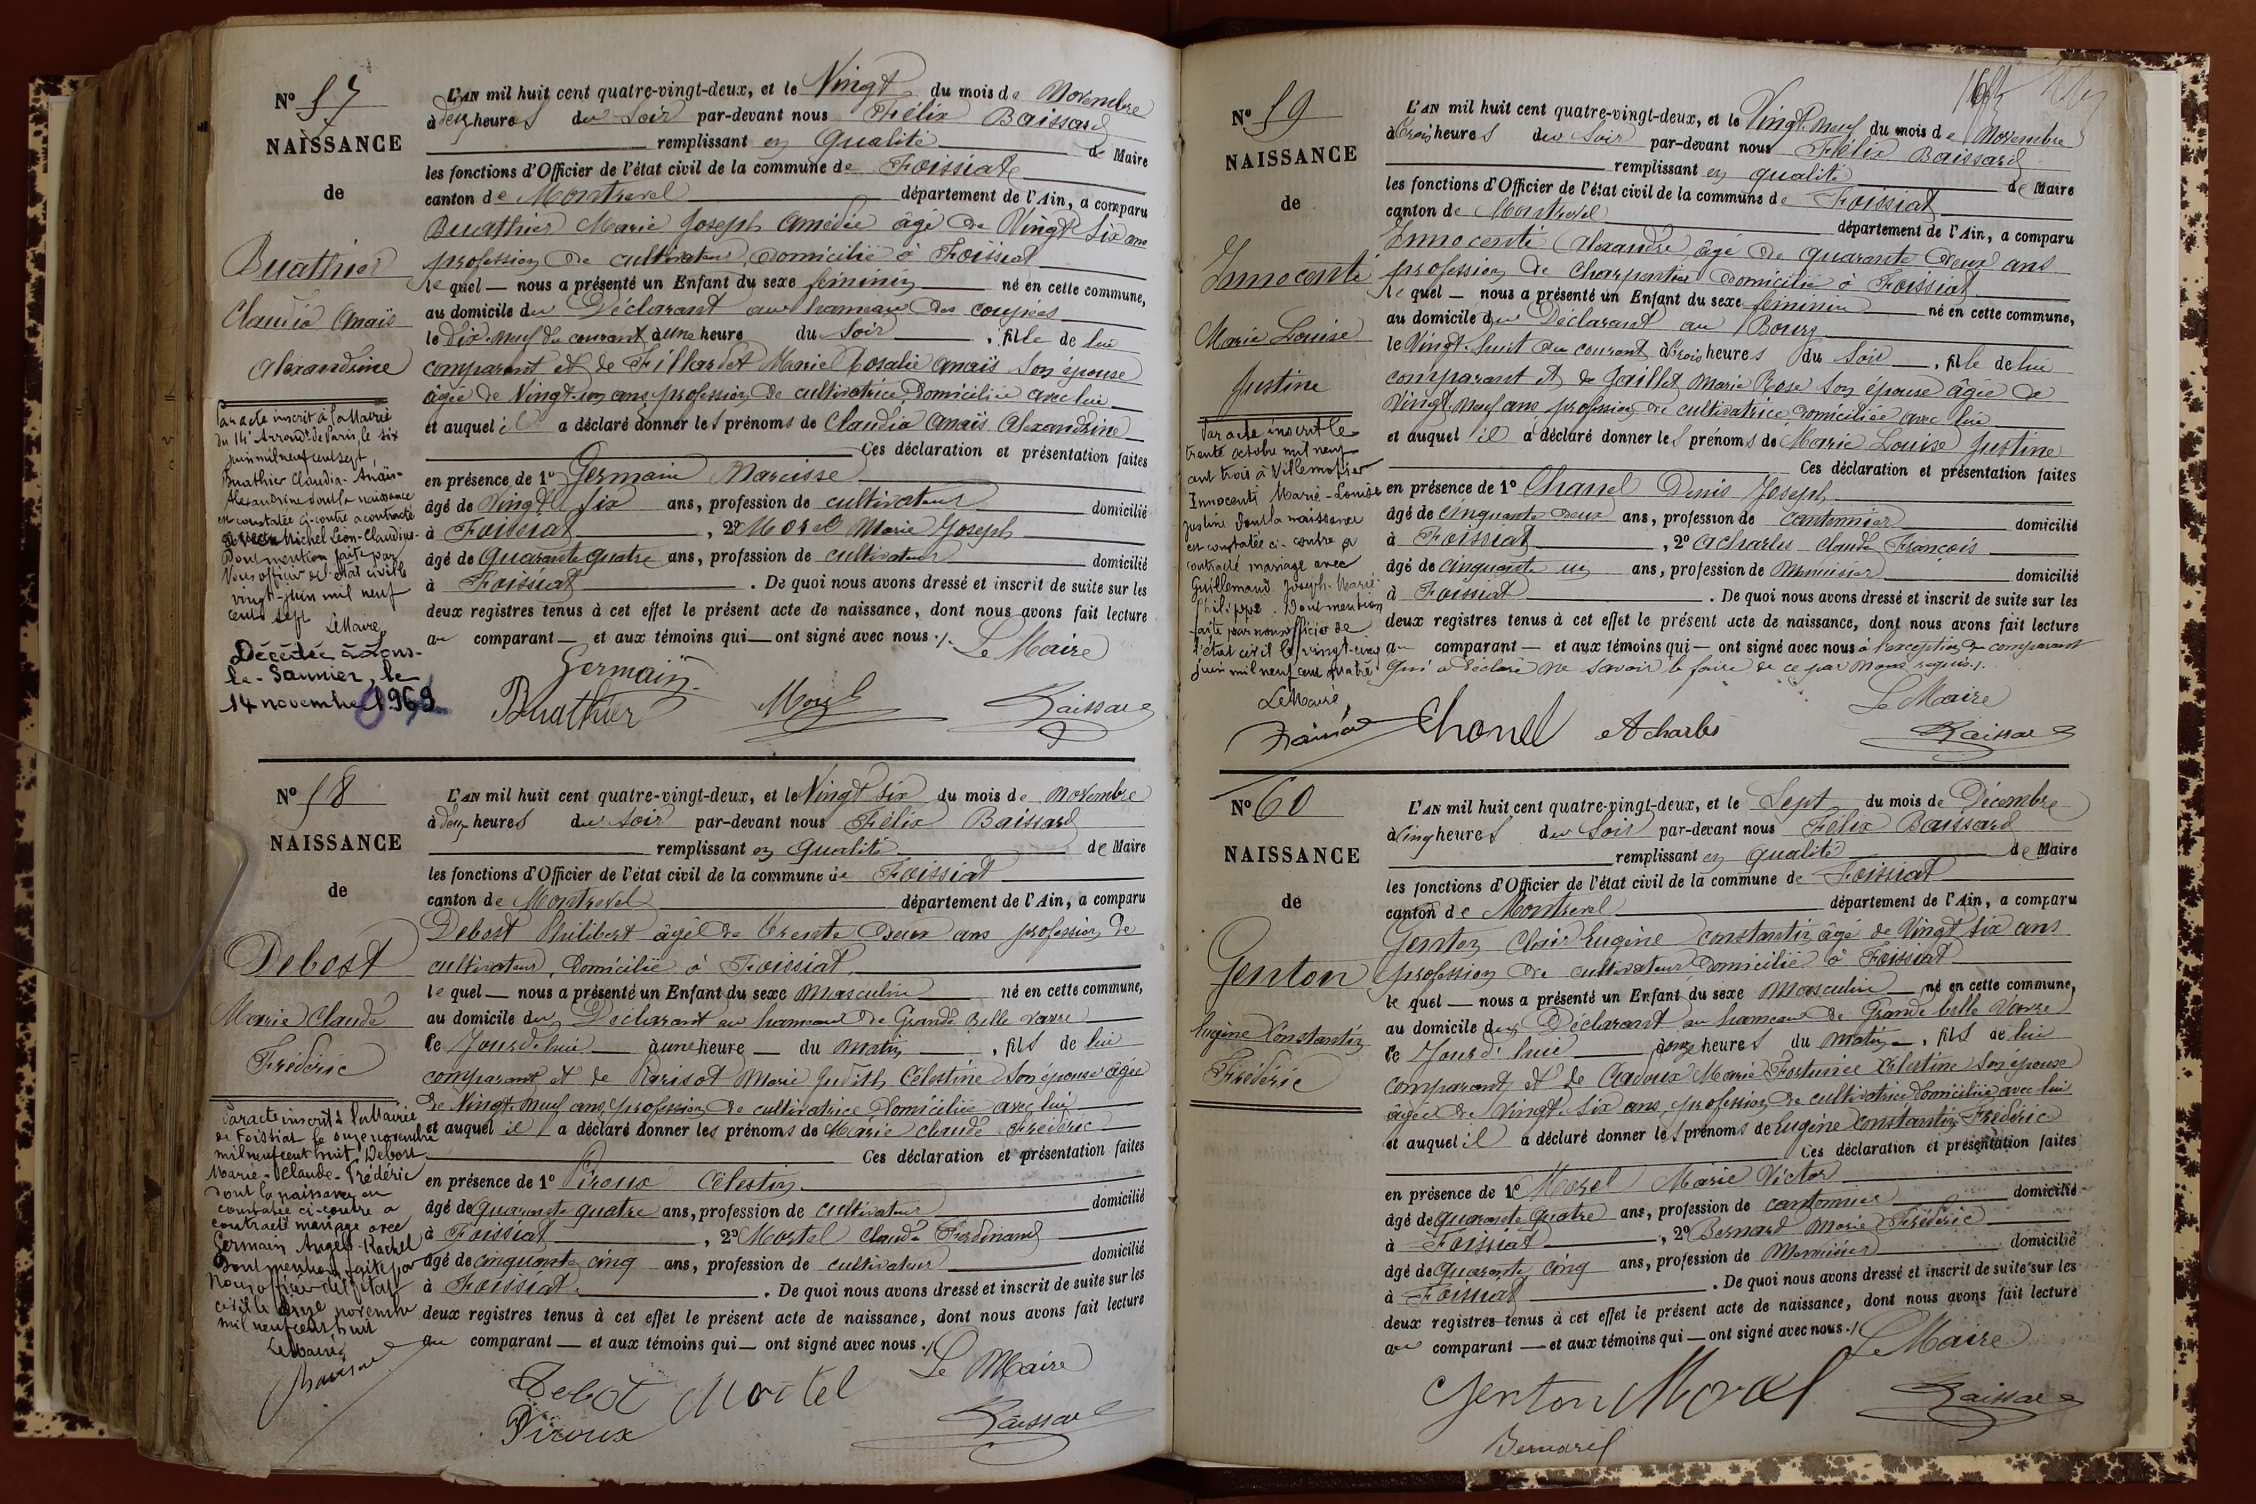 Nº 57
NAISSANCE
de
Buathier
Claudia Anaïs
Alexandrine
Par acte inscrit à la Mairie
du 14e Arrondt de Paris, le six
juin mil neuf cent sept
Buathier Claudia-Anaïs-
Alexandrine dont la naissance
est constatée ci-contre a contracté
Michel Léon-Claudius-
Dont mention faite par
Nous officier de l'état civil le
vingt juin mil neuf
cent sept
Le Maire
Décédée à Lons-
le-Saunier, le
14 novembre 1969
L'AN mil huit cent quatre-vingt-deux, et le Vingt du mois de Novembre
à deux heures du Soir par-devant nous Félix Baissard
remplissant en qualité de Maire
les fonctions d'Officier de l'état civil de la commune de Foissiat
canton de Montrevel département de l'Ain, a comparu
Buathier Marie Joseph Amédée âgé de Vingt Six ans
profession de cultivateur domicilié à Foissiat
le quel — nous a présenté un Enfant du sexe féminin né en cette commune,
au domicile du Déclarant au hameau des
le Dix-neuf du courant à une heure du Soir, fille de lui
comparant et de Fillardet Marie Rosalie Anaïs Son épouse
âgée de Vingt-un ans profession de cultivatrice domiciliée avec lui
et auquel il a déclaré donner les prénoms de Claudia Anaïs Alexandrine
Ces déclaration et présentation faites
en présence de 1º Germain Narcisse
âgé de Vingt Six ans, profession de cultivateur domicilié
à Foissiat, 2º Morel Marie Joseph
âgé de Quarante quatre ans, profession de cultivateur domicilié
à Foissiat. De quoi nous avons dressé et inscrit de suite sur les
deux registres tenus à cet effet le présent acte de naissance, dont nous avons fait lecture
au comparant — et aux témoins qui — ont signé avec nous ./. Le Maire
Germain
Buathier Morel Baissard
Nº 58
NAISSANCE
de
Debost
Marie Claude
Frédéric
Par acte inscrit à la Mairie
de Foissiat le onze novembre
mil neuf cent huit Debost
Marie-Claude-Frédéric
dont la naissance est
constatée ci-contre a
contracté mariage avec
Germain Angèle-Rachel
Dont mention faite par
Nous officier de l'état
civil le onze novembre
mil neuf cent huit
Le Maire
L'AN mil huit cent quatre-vingt-deux, et le Vingt Six du mois de Novembre
à deux heures du Soir par-devant nous Félix Baissard
remplissant en qualité de Maire
les fonctions d'Officier de l'état civil de la commune de Foissiat
canton de Montrevel département de l'Ain, a comparu
Debost Philibert âgé de trente Deux ans profession de
cultivateur, domicilié à Foissiat
le quel — nous a présenté un Enfant du sexe Masculin né en cette commune,
au domicile du Déclarant au hameau de Grande Belle vavre
le Jourd'hui à une heure — du Matin, fils de lui
comparant et de Parisot Marie Judith Célestine Son épouse âgée
de Vingt-Neuf ans, profession de cultivatrice domiciliée avec lui
et auquel il a déclaré donner les prénoms de Marie Claude Frédéric
Ces déclaration et présentation faites
en présence de 1º Piroux Célestin
âgé de Quarante quatre ans, profession de cultivateur domicilié
à Foissiat, 2º Mortel Claude Ferdinand
âgé de cinquante cinq ans, profession de cultivateur domicilié
à Foissiat. De quoi nous avons dressé et inscrit de suite sur les
deux registres tenus à cet effet le présent acte de naissance, dont nous avons fait lecture
au comparant — et aux témoins qui — ont signé avec nous ./. Le Maire
Debost Mortel
Piroux Baissard
Nº 59
NAISSANCE
de
Innocenti
Marie Louise
Justine
Par acte inscrit le
trente octobre mil neuf
cent trois à Villemotier
Innocenti Marie-Louise
Justine dont la naissance
est constatée ci-contre a
contracté mariage avec
Guillemaud Joseph-Marie
Philippe. Dont mention
faite par nous officier de
l'état civil le vingt-cinq
juin mil neuf cent quatre
Le Maire
L'AN mil huit cent quatre-vingt-deux, et le Vingt Neuf du mois de Novembre
à trois heures du Soir par-devant nous Félix Baissard
remplissant en qualité de Maire
les fonctions d'Officier de l'état civil de la commune de Foissiat
canton de Montrevel département de l'Ain, a comparu
Innocenti Alexandre âgé de quarante deux ans
profession de charpentier domicilié à Foissiat
le quel — nous a présenté un Enfant du sexe féminin né en cette commune,
au domicile du Déclarant au Bourg
le Vingt-huit du courant à trois heures du Soir, fille de lui
comparant et de Jaillet Marie Rose Son épouse âgée de
Vingt Neuf ans profession de cultivatrice domiciliée avec lui
et auquel il a déclaré donner les prénoms de Marie Louise Justine
Ces déclaration et présentation faites
en présence de 1º Chanel Denis Joseph
âgé de cinquante deux ans, profession de cantonnier domicilié
à Foissiat, 2º Acharles Claude François
âgé de cinquante un ans, profession de Menuisier domicilié
à Foissiat. De quoi nous avons dressé et inscrit de suite sur les
deux registres tenus à cet effet le présent acte de naissance, dont nous avons fait lecture
au comparant — et aux témoins qui — ont signé avec nous à l'exception du comparant
qui a déclaré ne savoir le faire de ce par Nous requis ./.
Le Maire
Chanel Acharles Baissard
Nº 60
NAISSANCE
de
Genton
Eugène Constantin
Frédéric
L'AN mil huit cent quatre-vingt-deux, et le Sept du mois de Décembre
à cinq heures du Soir par-devant nous Félix Baissard
remplissant en qualité de Maire
les fonctions d'Officier de l'état civil de la commune de Foissiat
canton de Montrevel département de l'Ain, a comparu
Genton Clair Eugène Constantin âgé de Vingt Six ans
profession de cultivateur domicilié à Foissiat
le quel — nous a présenté un Enfant du sexe Masculin né en cette commune,
au domicile du Déclarant au hameau de Grande belle Vavre
le Jourd'hui à onze heures du Matin, fils de lui
comparant et de Cadoux Marie Fortunée Célestine Son épouse
âgée de Vingt-Six ans, profession de cultivatrice domiciliée avec lui
et auquel il a déclaré donner les prénoms de Eugène Constantin Frédéric
Ces déclaration et présentation faites
en présence de 1º Morel Marie Victor
âgé de Quarante Quatre ans, profession de cantonnier domicilié
à Foissiat, 2º Bernard Marie Frédéric
âgé de Quarante cinq ans, profession de Menuisier domicilié
à Foissiat. De quoi nous avons dressé et inscrit de suite sur les
deux registres tenus à cet effet le présent acte de naissance, dont nous avons fait lecture
au comparant — et aux témoins qui — ont signé avec nous ./. Le Maire
Genton Morel Baissard
Bernard